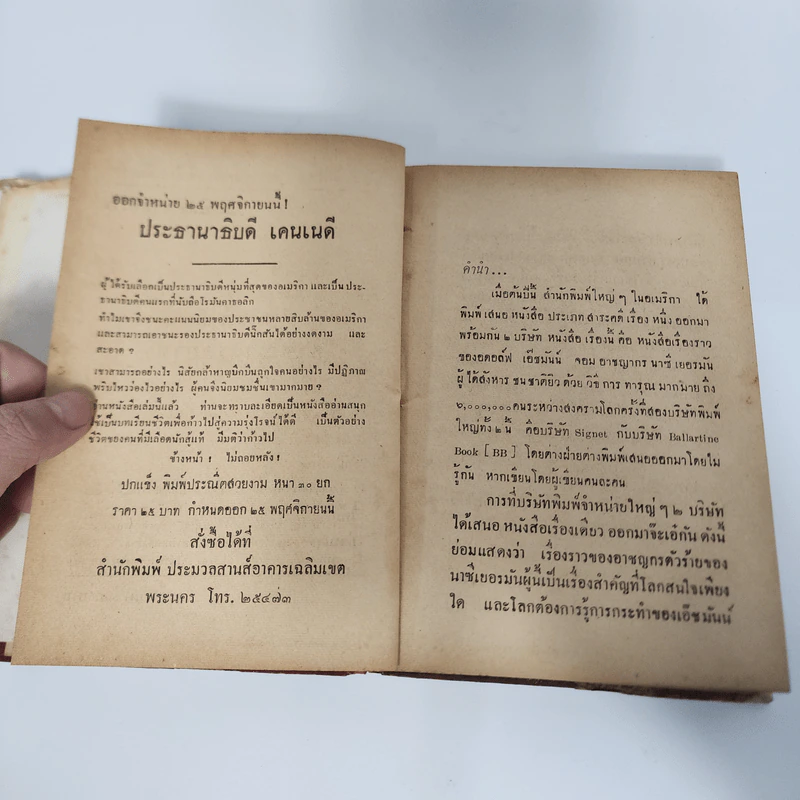 ออกจำหน่าย ๒๕ พฤศจิกายนนี้ !
ประธานาธิบดี เคนเนดี
ผู้ได้รับเลือกเป็นประธานาธิบดีหนุ่มที่สุดของอเมริกา และเป็น ประ-
ธานาธิบดีคนแรกที่นับถือโรมันคาธอลิก
ทำไมเขาจึงชนะคะแนนนิยมของประชาชนหลายสิบล้านของอเมริกา
และสามารถเอาชนะรองประธานาธิบดีนิกสันได้อย่างงดงาม และ
สะอาด ?
เขาสามารถอย่างไร นิสัยกล้าหาญบึกบึนถูกใจคนอย่างไร มีปฏิภาณ
พริบไหวว่องไวอย่างไร ผู้คนจึงนิยมชมชื่นเขามากมาย ?
อ่านหนังสือเล่มนี้แล้ว ท่านจะทราบละเอียดเป็นหนังสืออ่านสนุก
ใช้เป็นบทเรียนชีวิตเพื่อก้าวไปสู่ความรุ่งโรจน์ได้ดี เป็นตัวอย่าง
ชีวิตของคนที่มีเลือดนักสู้แท้ มีมติว่าก้าวไป
ข้างหน้า ! ไม่ถอยหลัง !
ปกแข็ง พิมพ์ประณีตสวยงาม หนา ๓๐ ยก
ราคา ๒๕ บาท กำหนดออก ๒๕ พฤศจิกายนนี้
สั่งซื้อได้ที่
สำนักพิมพ์ ประมวลสานส์อาคารเฉลิมเขต
พระนคร โทร. ๒๕๔๗๓
คำนำ...
เมื่อต้นปีนี้ สำนักพิมพ์ใหญ่ ๆ ในอเมริกา ได้
พิมพ์เสนอ หนังสือ ประเภท สาระคดี เรื่อง หนึ่ง ออกมา
พร้อมกัน ๒ บริษัท หนังสือ เรื่องนี้ คือ หนังสือเรื่องราว
ของอดอล์ฟ เอ็ชมันน์ จอม อาชญากร นาซี เยอรมัน
ผู้ได้สังหาร ชนชาติยิว ด้วย วิธี การ ทารุณ มากมาย ถึง
๖,๐๐๐,๐๐๐คนระหว่างสงครามโลกครั้งที่สองบริษัทพิมพ์
ใหญ่ทั้ง ๒ นี้ คือบริษัท Signet กับบริษัท Ballartine
Book [ BB ] โดยต่างฝ่ายต่างพิมพ์เสนอออกมาโดยไม่
รู้กัน หากเขียนโดยผู้เขียนคนละคน
การที่บริษัทพิมพ์จำหน่ายใหญ่ ๆ ๒ บริษัท
ได้เสนอ หนังสือเรื่องเดียว ออกมาจ๊ะเอ๋กัน ดังนี้
ย่อมแสดงว่า เรื่องราวของอาชญกรตัวร้ายของ
นาซีเยอรมันผู้นี้เป็นเรื่องสำคัญที่โลกสนใจเพียง
ใด และโลกต้องการรู้การกระทำของเอ็ชมันน์